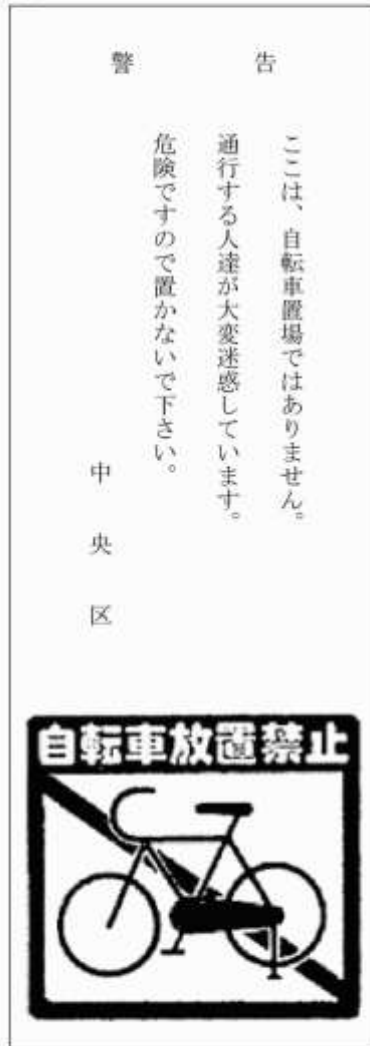 警告
ここは、自転車置場ではありません。
通行する人達が大変迷惑しています。
危険ですので置かないで下さい。
中央区
自転車放置禁止